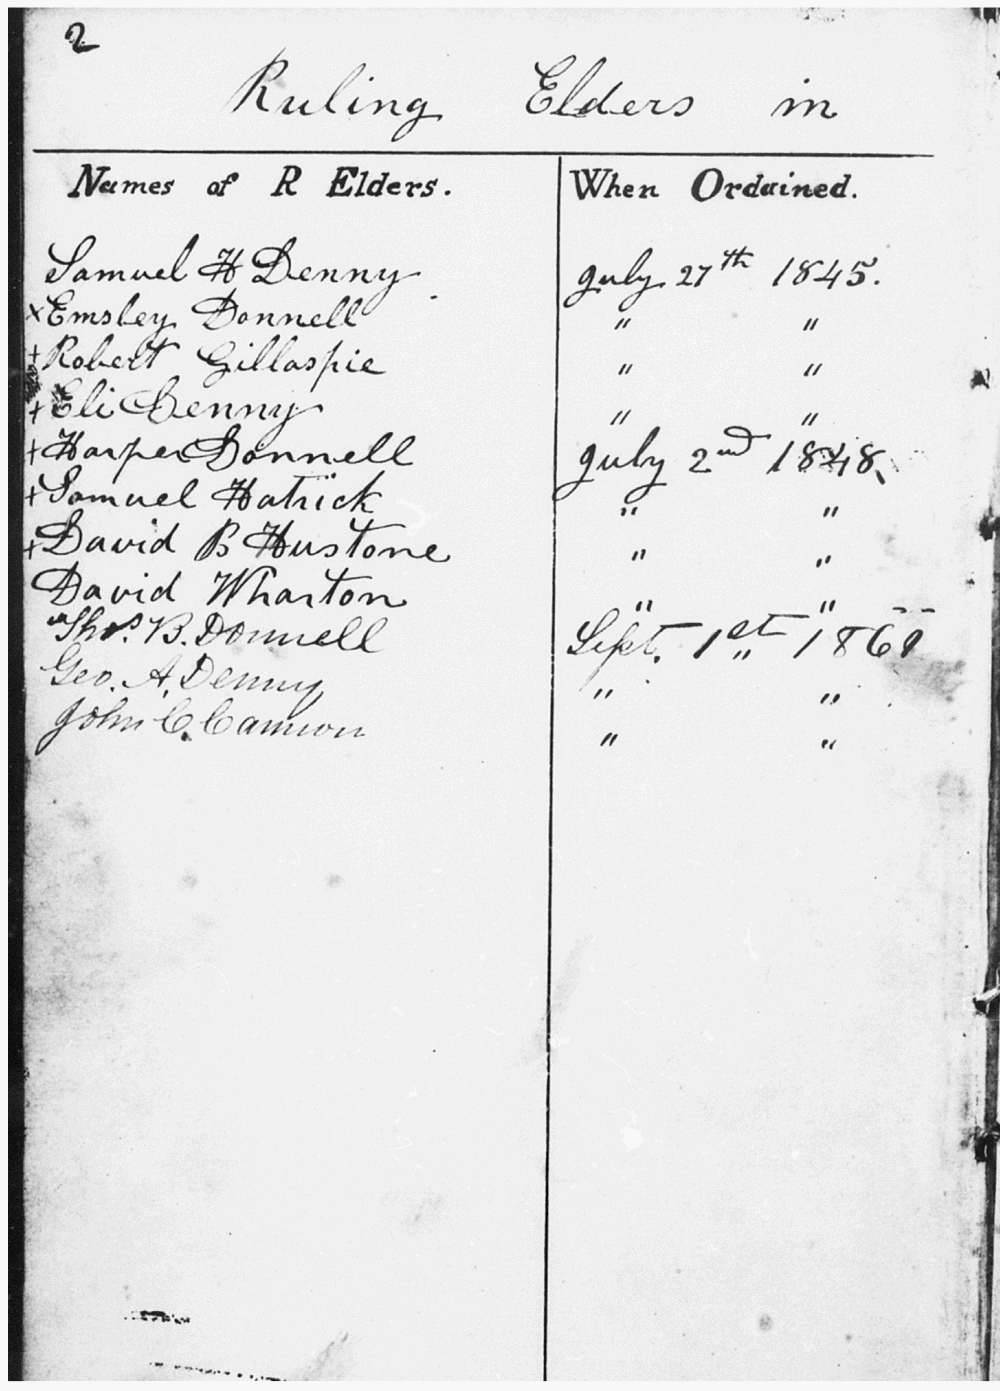 2
Ruling Elders in
Names of R Elders. When Ordained.
Samuel H Denny July 27th 1845.
x Emsley Donnell " "
+ Robert Gillaspie " "
+ Eli Denny " "
+ Harper Donnell July 2nd 1848
+ Samuel Hatrick " "
+ David B Hustone " "
David Wharton " "
Thos. B. Donnell Sept. 1st " 1861
Geo. A. Denny " "
John C. Cannon " "